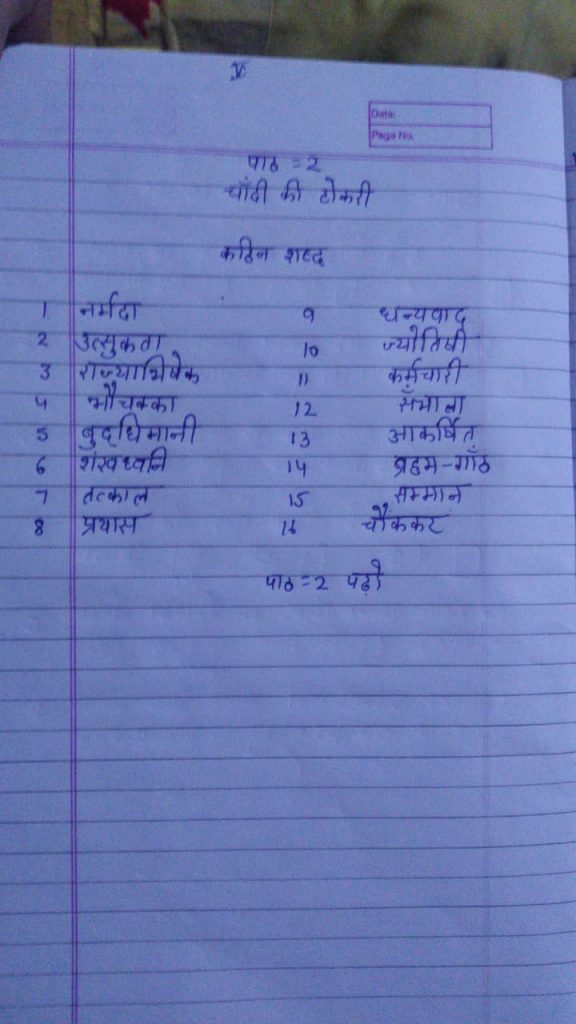 V
Date:
Page No.
पाठ = 2
चाँदी की टोकरी
कठिन शब्द
1 नर्मदा 9 धन्यवाद
2 उत्सुकता 10 ज्योतिषी
3 राज्याभिषेक 11 कर्मचारी
4 भौचक्का 12 सँभाला
5 बुद्धिमानी 13 आकर्षित
6 शंखध्वनि 14 ब्रह्म-गाँठ
7 तत्काल 15 सम्मान
8 प्रयास 16 चौंककर
पाठ = 2 पढ़ो